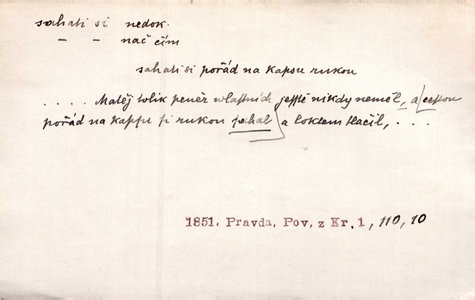 sahati si nedok.
– – nač čím
sahati si pořád na kapsu rukou
. . . . Matěj tolik peněz wlastních jesstě nikdy neměl, a cestou
pořád na kapsu si rukou sahal a loktem tlačil, . . .
1851. Pravda, Pov. z Kr. 1, 110, 10